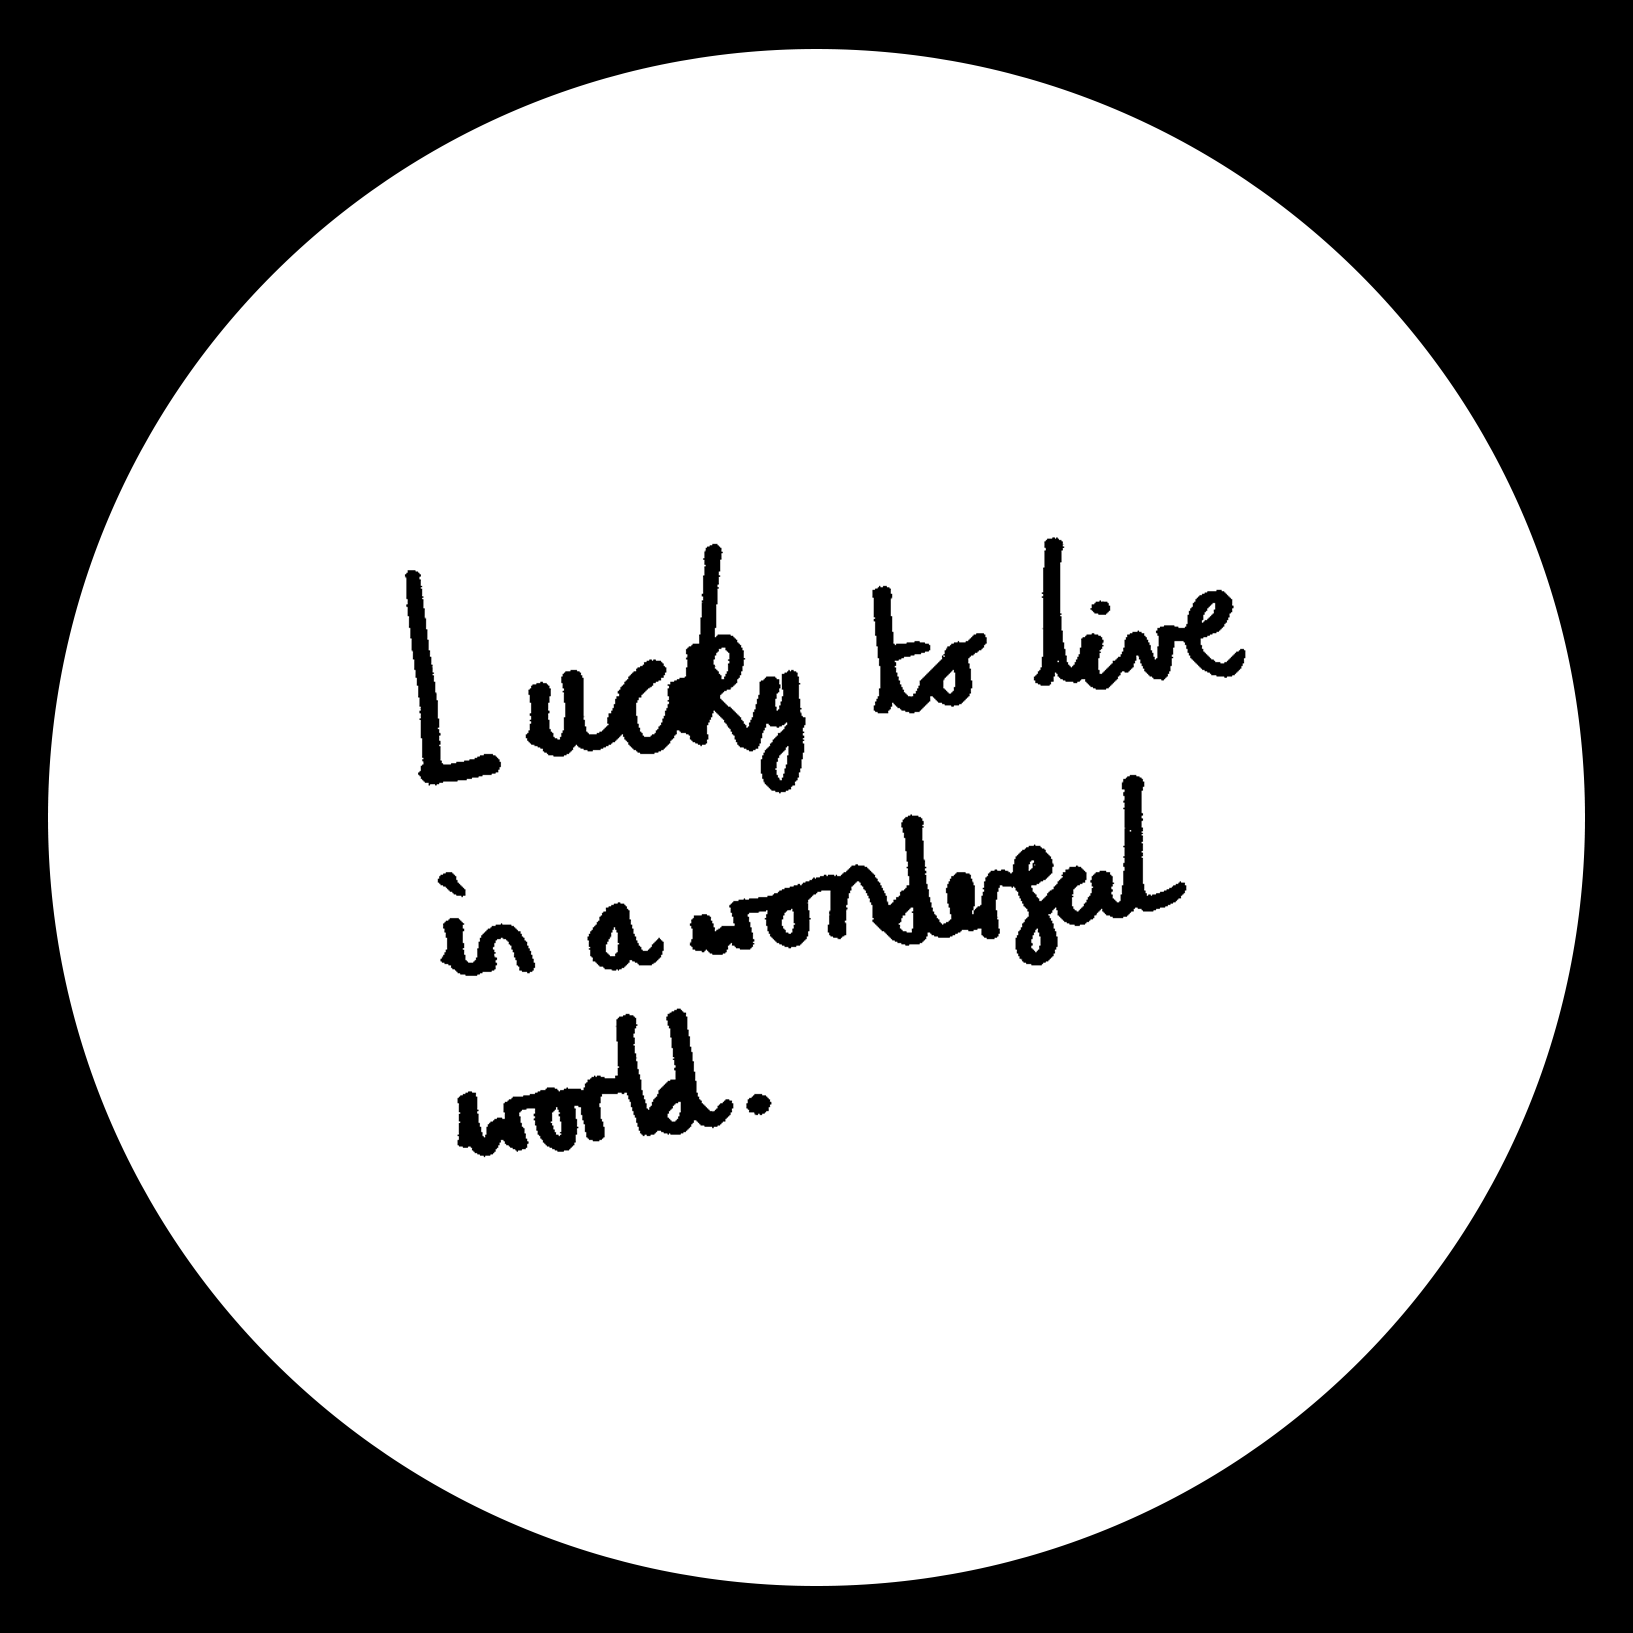 Lucky to live
in a wonderful
world.